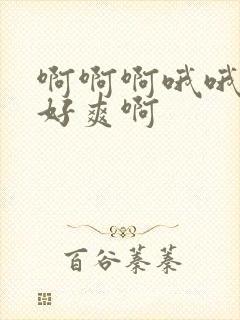 啊啊啊哦哦
好爽啊
百谷蓁蓁